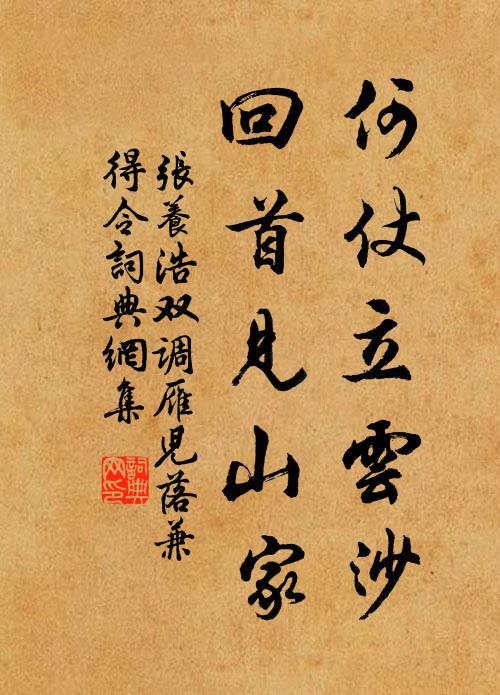 何仗立雲沙
回首見山家
張養浩双调雁児落兼
得令詞典網集
詞典
网印